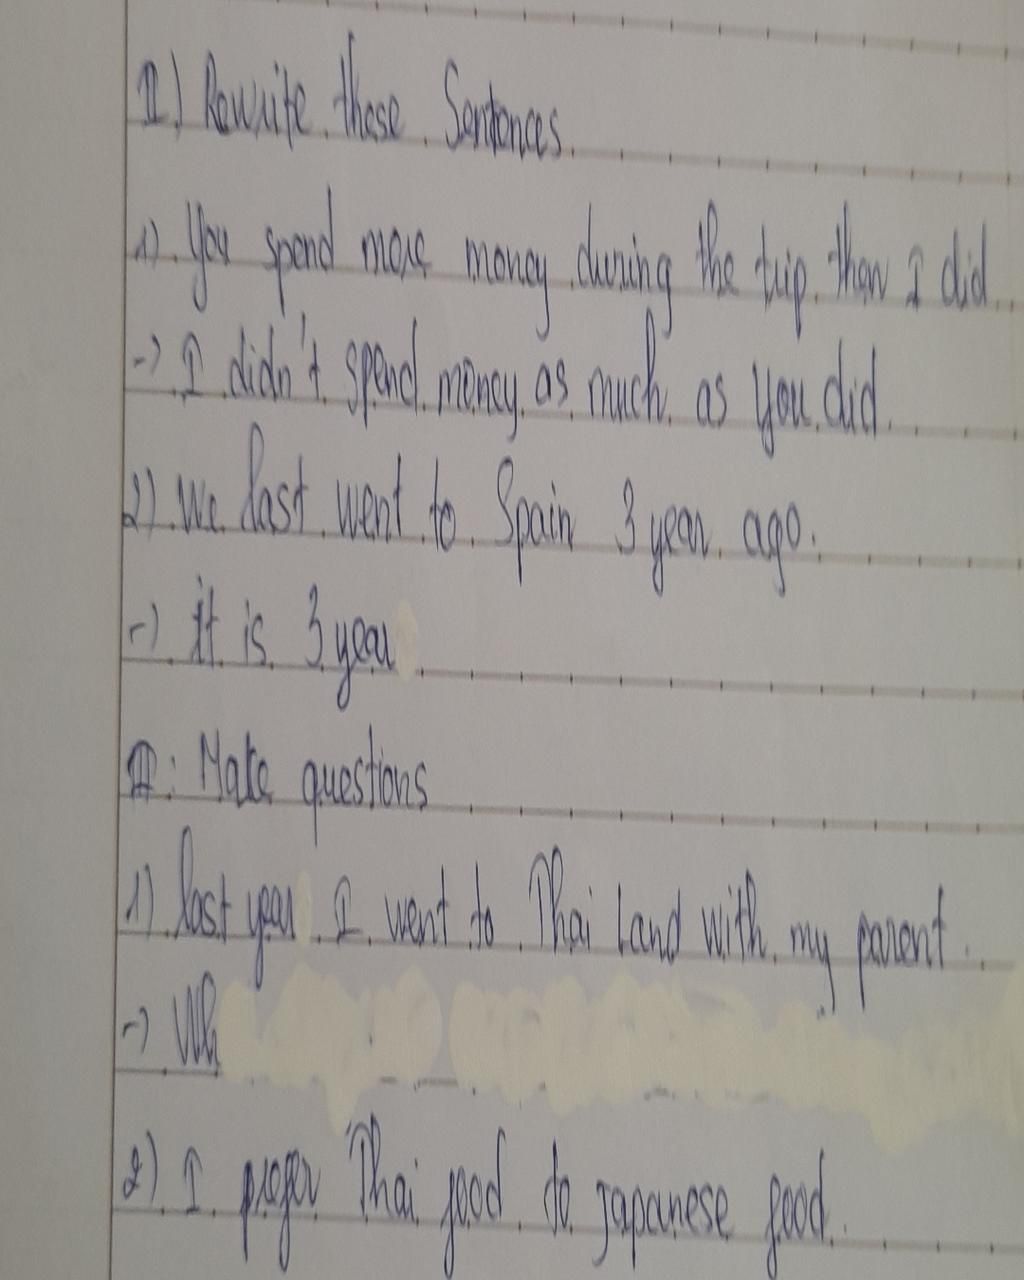 II) Rewrite these Sentences.
1) You spend more money during the trip than I did.
-> I didn't spend money as much as you did.
2) We last went to Spain 3 year ago.
-> it is 3 year
III: Make questions
1) last year I went to Thai Land with my parent.
-> Wh
2) I prefer Thai food to Japanese food.